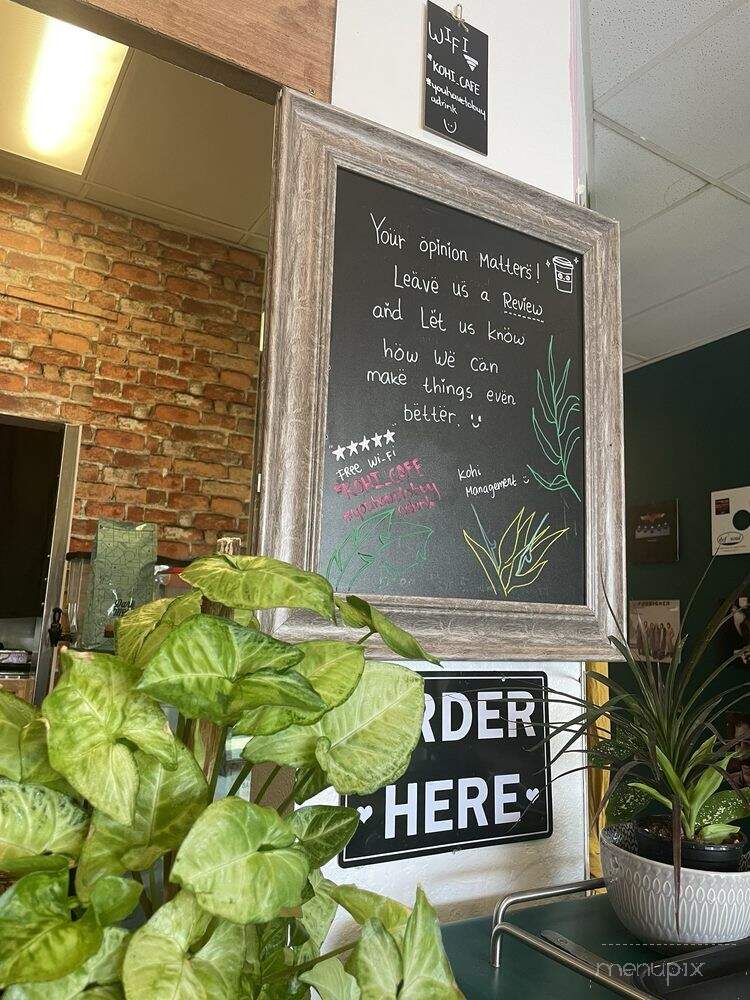 WIFI
*KOHI_CAFE
*youhavetobuy
adrink
Your opinion Matters!
Leave us a Review
and Let us know
how we can
make things even
better.
Free Wi-Fi
*KOHI_CAFE
*youhavetobuy
adrink
Kohi
Management
RDER
HERE
menupix